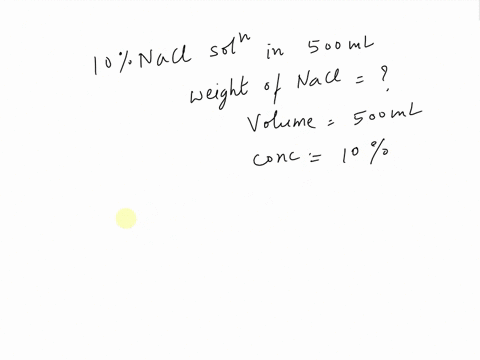 10% NaCl solⁿ in 500mL
Weight of NaCl = ?
Volume = 500mL
Conc = 10%